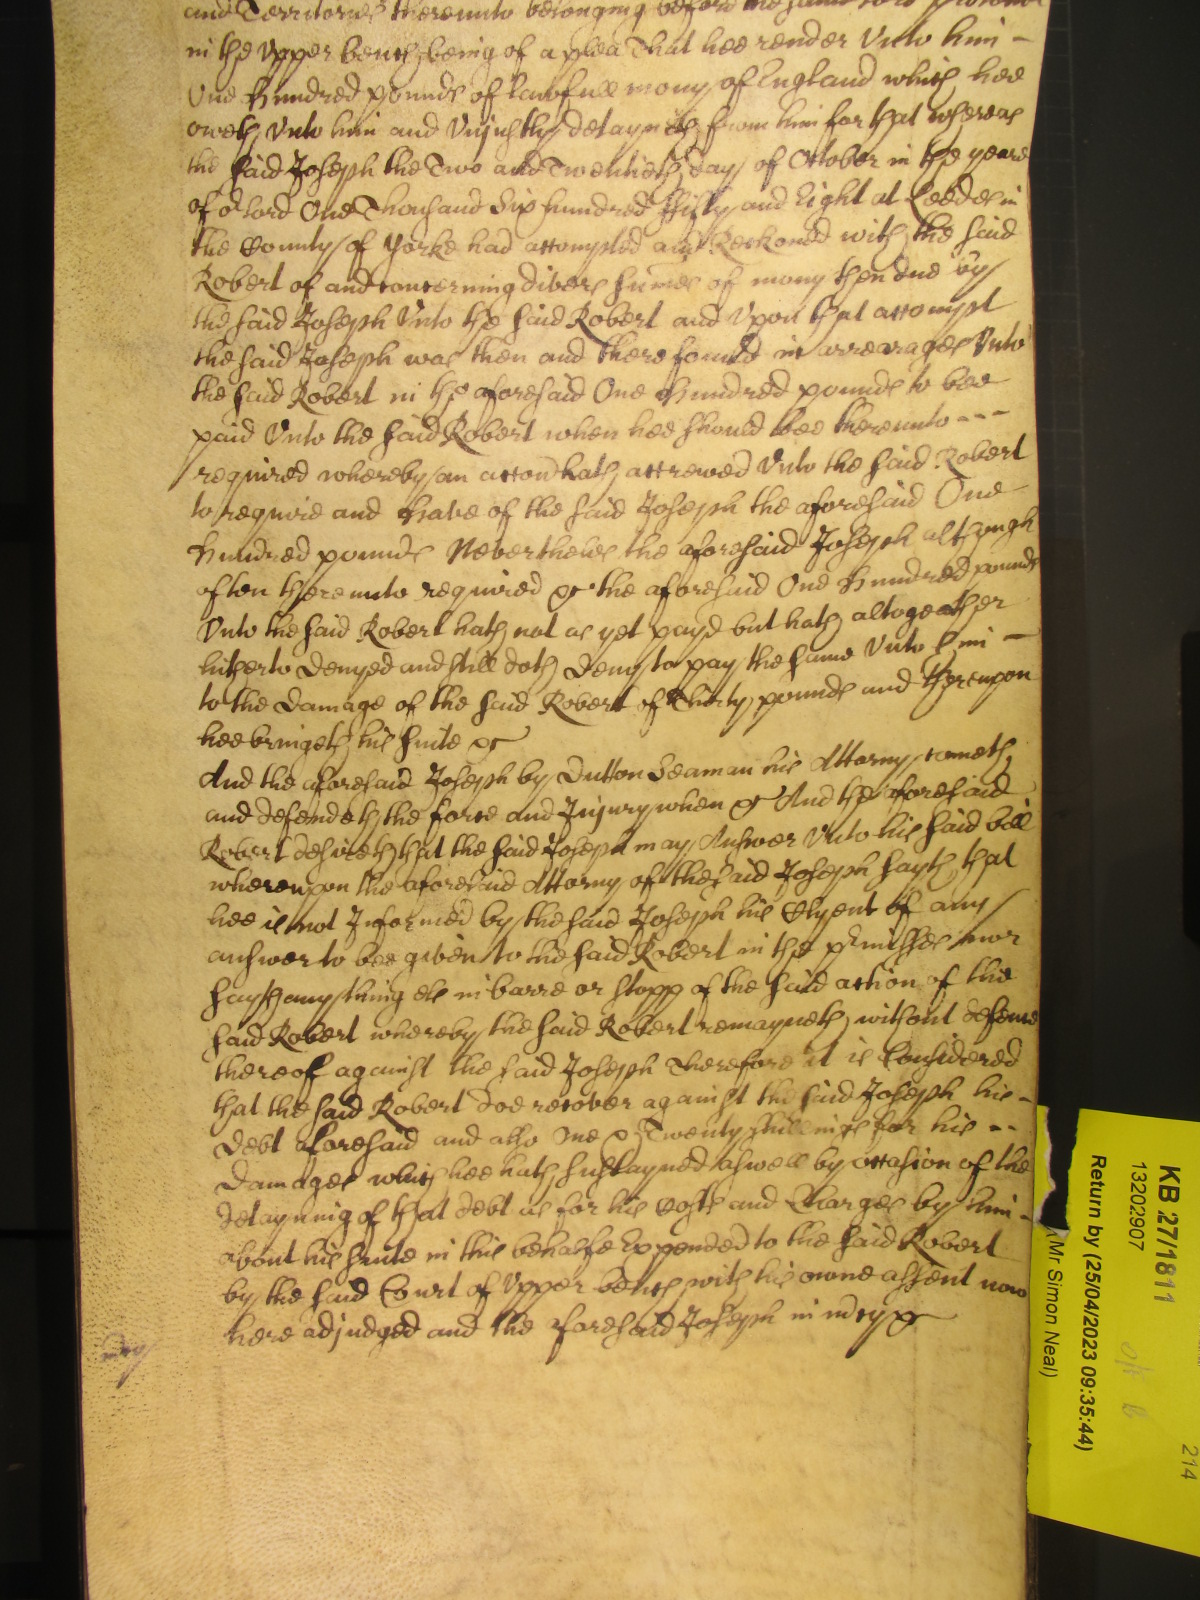 and Territories thereunto belonging before the same Lord Protector
in the Upper bench being of a plea That hee render Unto him -
One Hundred pounds of lawfull mony of England which hee
oweth Unto him and Unjustly detayneth from him for that whereas
the said Joseph the Two and Twentieth day of October in the yeare
of or lord One Thousand Six hundred ffifty and Eight at Leedes in
the County of Yorke had accompted and Reckoned with the said
Robert of and concerning divers summes of mony then due by
the said Joseph Unto the said Robert and Upon that accompt
the said Joseph was then and there found in arrerages Unto
the said Robert in the aforesaid One Hundred pounds to bee
paid Unto the said Robert when hee should bee thereunto ---
required whereby an accon hath accrewed Unto the said Robert
to require and Have of the said Joseph the aforesaid One
Hundred pounds Nevertheles the aforesaid Joseph although
often thereunto required &c the aforesaid One Hundred pounds
Unto the said Robert hath not as yet payd but hath altogeather
hitherto denyed and still doth deny to pay the same Unto him -
to the damage of the said Robert of Thirty pounds and thereupon
hee bringeth his suite &c
And the aforesaid Joseph by Dutton Seaman his Attorny cometh
and defendeth the force and Injury when &c And the aforesaid
Robert desireth that the said Joseph may Answer Unto his said bill
whereupon the aforesaid Attorny of the said Joseph sayth that
hee is not Informed by the said Joseph his Clyent of any
answer to bee given to the said Robert in the pmisses nor
sayth any thing els in barre or stopp of the said action of the
said Robert whereby the said Robert remayneth without defence
thereof against the said Joseph Therefore it is Considered
that the said Robert doe recover against the said Joseph his -
debt aforesaid and also One & Twenty shillings for his --
damages which hee hath sustayned aswell by occasion of the
detayning of that debt as for his Costs and Charges by him -
about his suite in this behalfe Expended to the said Robert
by the said Court of Upper bench with his owne assent now
here adjudged and the foresaid Joseph in mcy &c
mcy
KB 27/1811
13202907
Return by (25/04/2023 09:35:44)
(Mr Simon Neal)
214